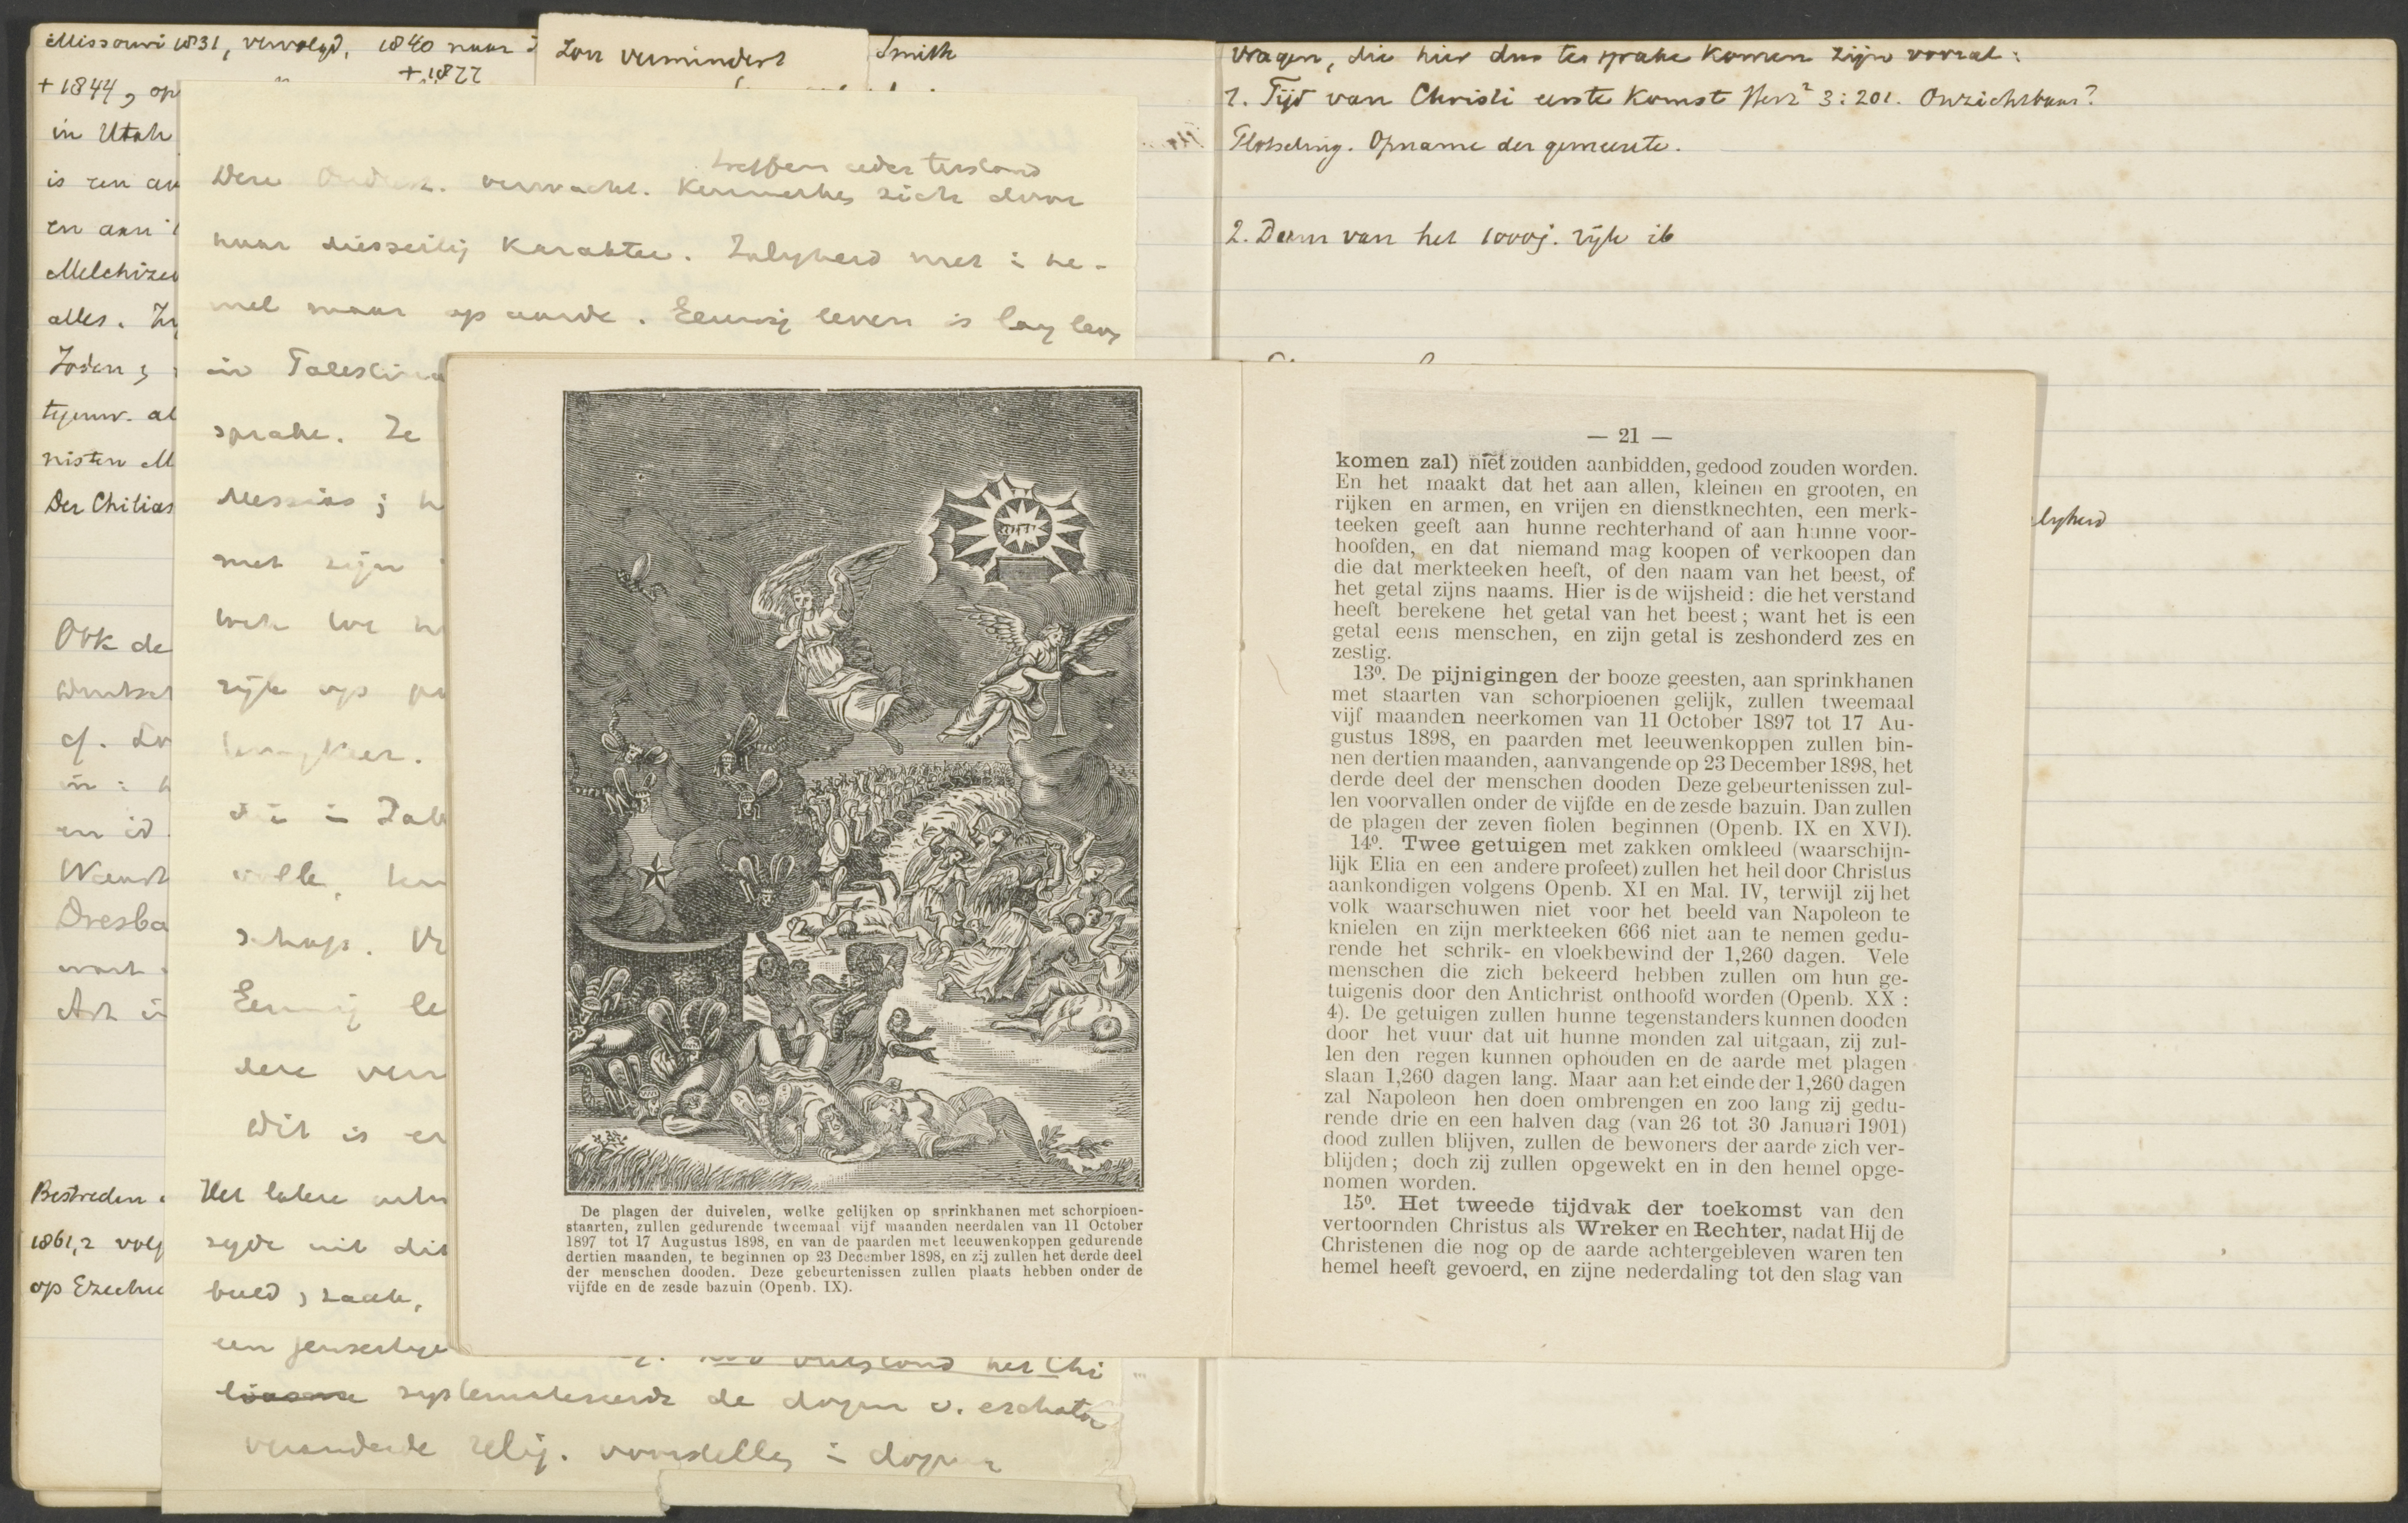 Missouri 1831, vervolgd, 1840 naar
+ 1877
+ 1844, op
in Utah
is een
en aan
Melchize
alles.
Joden;
tegenw. al
nisten M
Der Chilias
Ook de
cf.
en
Dresba
Bestreden
1861,2 volg
op Ezechi
vermindert
Smith
treffen ieder terstond
Deze verwacht. Kenmerken zich door
haar diesseitig karakter. Zaligheid niet i he-
mel maar op aarde. Eeuwig leven is lang leven
in Palestina
sprake. Ze
Messias; h
met zijn
rijk op
Eeuwig le
dere verw
Dit is
Het latere
zijde uit dit
beeld, zaak,
een jenseitige
ontstond het Chi
liasme systematiseerde de dogm v. eschato
veranderde relig. voorstelling i dogma
Vragen, die hier dus ter sprake komen zijn vooral:
1. Tijd van Christi eerste komst Herz² 3:201. Onzichtbaar?
Plotseling. Opname der gemeente.
2. Duur van het 1000j. rijk ib
De plagen der duivelen, welke gelijken op sprinkhanen met schorpioen-
staarten, zullen gedurende tweemaal vijf maanden neerdalen van 11 October
1897 tot 17 Augustus 1898, en van de paarden met leeuwenkoppen gedurende
dertien maanden, te beginnen op 23 December 1898, en zij zullen het derde deel
der menschen dooden. Deze gebeurtenissen zullen plaats hebben onder de
vijfde en de zesde bazuin (Openb. IX).
— 21 —
komen zal) niet zouden aanbidden, gedood zouden worden.
En het maakt dat het aan allen, kleinen en grooten, en
rijken en armen, en vrijen en dienstknechten, een merk-
teeken geeft aan hunne rechterhand of aan hunne voor-
hoofden, en dat niemand mag koopen of verkoopen dan
die dat merkteeken heeft, of den naam van het beest, of
het getal zijns naams. Hier is de wijsheid: die het verstand
heeft berekene het getal van het beest; want het is een
getal eens menschen, en zijn getal is zeshonderd zes en
zestig.
13⁰. De pijnigingen der booze geesten, aan sprinkhanen
met staarten van schorpioenen gelijk, zullen tweemaal
vijf maanden neerkomen van 11 October 1897 tot 17 Au-
gustus 1898, en paarden met leeuwenkoppen zullen bin-
nen dertien maanden, aanvangende op 23 December 1898, het
derde deel der menschen dooden Deze gebeurtenissen zul-
len voorvallen onder de vijfde en de zesde bazuin. Dan zullen
de plagen der zeven fiolen beginnen (Openb. IX en XVI).
14⁰. Twee getuigen met zakken omkleed (waarschijn-
lijk Elia en een andere profeet) zullen het heil door Christus
aankondigen volgens Openb. XI en Mal. IV, terwijl zij het
volk waarschuwen niet voor het beeld van Napoleon te
knielen en zijn merkteeken 666 niet aan te nemen gedu-
rende het schrik- en vloekbewind der 1,260 dagen. Vele
menschen die zich bekeerd hebben zullen om hun ge-
tuigenis door den Antichrist onthoofd worden (Openb. XX :
4). De getuigen zullen hunne tegenstanders kunnen dooden
door het vuur dat uit hunne monden zal uitgaan, zij zul-
len den regen kunnen ophouden en de aarde met plagen
slaan 1,260 dagen lang. Maar aan het einde der 1,260 dagen
zal Napoleon hen doen ombrengen en zoo lang zij gedu-
rende drie en een halven dag (van 26 tot 30 Januari 1901)
dood zullen blijven, zullen de bewoners der aarde zich ver-
blijden; doch zij zullen opgewekt en in den hemel opge-
nomen worden.
15⁰. Het tweede tijdvak der toekomst van den
vertoornden Christus als Wreker en Rechter, nadat Hij de
Christenen die nog op de aarde achtergebleven waren ten
hemel heeft gevoerd, en zijne nederdaling tot den slag van